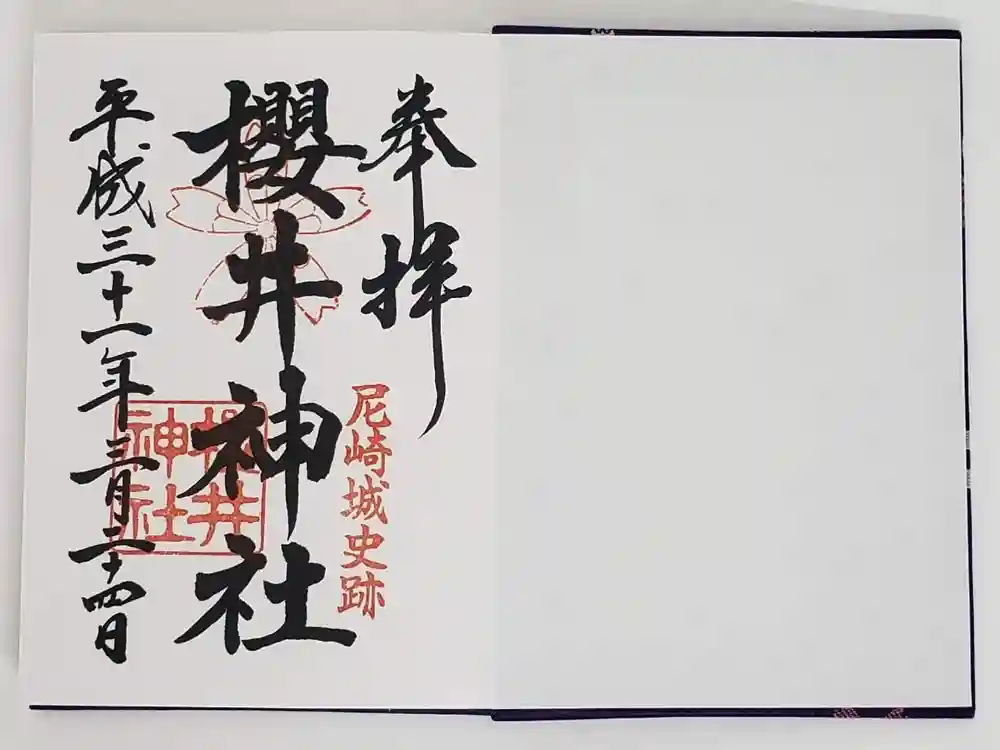 奉拝
尼崎城史跡
櫻井神社
櫻井
神社
平成三十一年三月二十四日